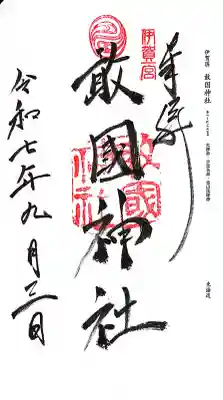 伊賀国 敢国神社
奉拝
伊賀一宮
敢國神社
敢國神社
令和七年九月三日